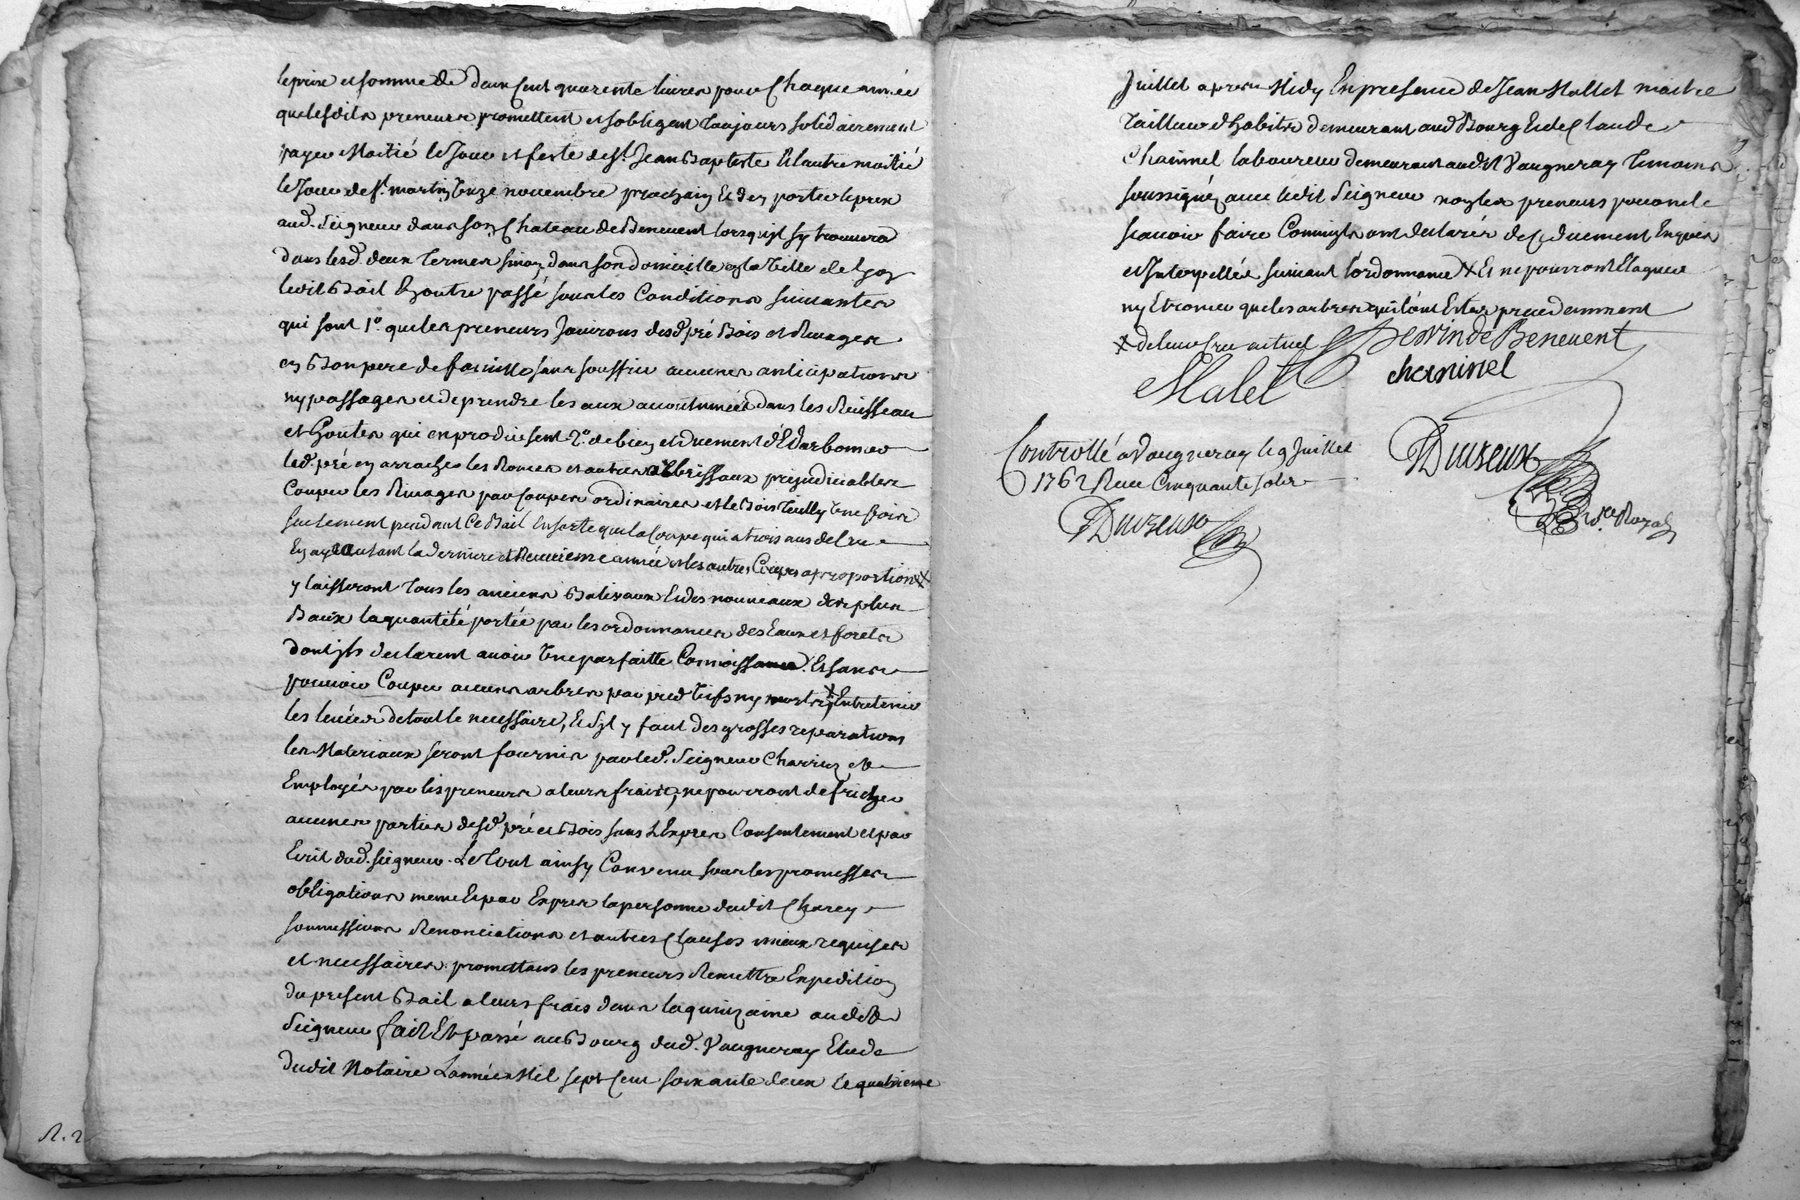 le prix et somme de deux cent quarente livres pour chaque année
que lesdits preneurs promettent et sobligent toujours solidairement
payer Moitié le Jour et feste de St. Jean Baptiste Et lautre moitié
le Jour de St. martin Unze novembre prochain Et den porter le prix
aud. Seigneur dans son Chateau de Benevent lorsquil sy trouvera
dans lesd. deux termes sinon dans son domicille en la Ville de Lyon
ledit Bail En outre passé sous les Conditions suivantes
qui sont 1o. que les preneurs Jouirons desd. pré Bois et Rivages
en Bon pere de famille sans souffrir aucunes anticipations
ny passages et de prendre les aux accoutumées dans les Ruisseau
et qui en produisent 2o. de bien et duement
led. pré en arracher les Ronces et autres arbrissaux prejudiciables
Couper les Rivages par Coupes ordinaires et le Bois une fois
seulement pendant Ce Bail Ensorte que la Coupe qui a trois ans de Cru
la derniere et Neuvieme année et les autres Coupes a proportion X
y laisseront tous les anciens Balivaux Et des nouveaux des plus
Baux la quantité portée par les ordonnances des Eaux et forets
dont jls declarent avoir Une parfaitte Connoissance Et sans
pouvoir Couper aucuns arbres par pied vifs ny morts X Entretenir
les levées de tout le necessaire, Et Sil y faut des grosses reparations
les Materiaux seront fournis par led. Seigneur Charriez et
Employés par les preneurs a leurs frais, ne pourront defricher
aucunes parties desd. pré et Bois sans LExpres Consentement et par
Ecrit dud. seigneur. Le Tout ainsy Convenu sous les promesses
obligations meme Et par Expres la personne dudit Charey
soumissions Renonciations et autres Clauses mieux requises
et necessaires promettans les preneurs Remettre Expedition
du present Bail a leurs frais dans la quinzaine audit
Seigneur fait Et passé au Bourg dud. Vaugneray Etude
dudit Notaire Lannée Mil sept cent soixante deux le quatrieme
Juillet apres Midy En presence de Jean Mallet maitre
tailleur dhabits demeurant aud Bourg Et de Claude
Chaninel laboureur demeurant audit Vaugneray temoins
soussignéz avec ledit Seigneur non les preneurs pour ne le
scavoir faire Comme jls ont declarés de Ce duement Enquis
et Interpellés suivant lordonnance X Et ne pourront Elaguer
ny que les arbres qui lont Eté precedemment
X de leur Cru actuel
Servin de Benevent
Malet
chaninel
Controllé a Vaugneray le 9 Juillet
1762 Reçu Cinquante sols
Duvreux
Duvreux
re. Royal
R. 2